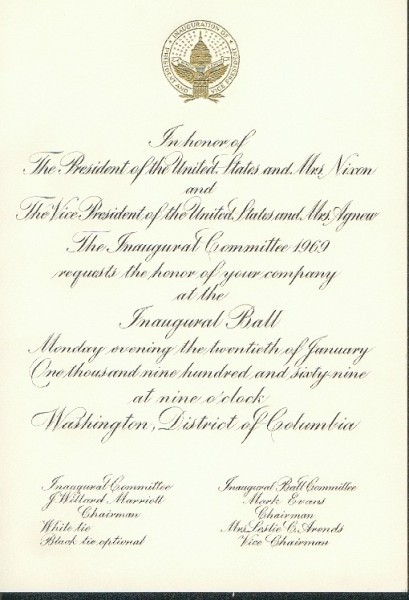 INAUGURATION OF
PRESIDENT AND VICE PRESIDENT
In honor of
The President of the United States and Mrs. Nixon
and
The Vice President of the United States and Mrs. Agnew
The Inaugural Committee 1969
requests the honor of your company
at the
Inaugural Ball
Monday evening the twentieth of January
One thousand nine hundred and sixty-nine
at nine o'clock
Washington, District of Columbia
Inaugural Committee
J. Willard Marriott
Chairman
White tie
Black tie optional
Inaugural Ball Committee
Mark Evans
Chairman
Mrs. Leslie C. Arends
Vice Chairman